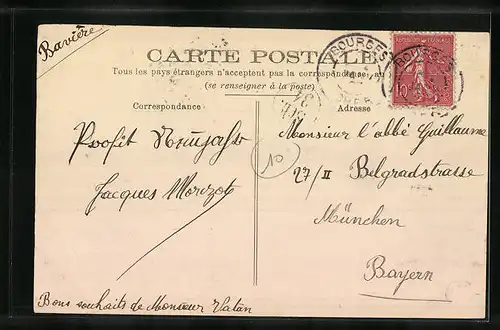 (Bavière)
CARTE POSTALE
Tous les pays étrangers n'acceptent pas la correspondance au
(se renseigner à la poste)
BOURGES
BOURGES
10
Correspondance
Prosit Neujahr
Jacques Morizot
Bons souhaits de Monsieur Vatan
Adresse
Monsieur l'abbé Guillaume
27/II Belgradstrasse
München
Bayern